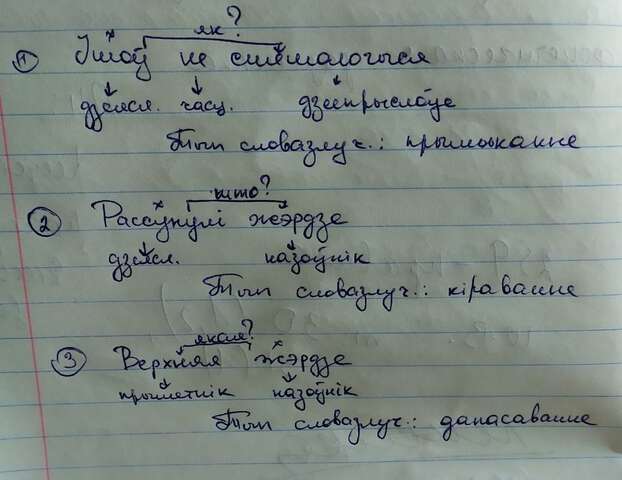 як?
1) Ішоў не спяшаючыся
дзеясл. часц. дзеепрыслоўе
Тып словазлуч.: прымыканне
што?
2 Рассунулі жэрдзе
дзеясл. назоўнік
Тып словазлуч.: кіраванне
якая?
3 Верхняя жэрдзе
прыметнік назоўнік
Тып словазлуч.: дапасаванне